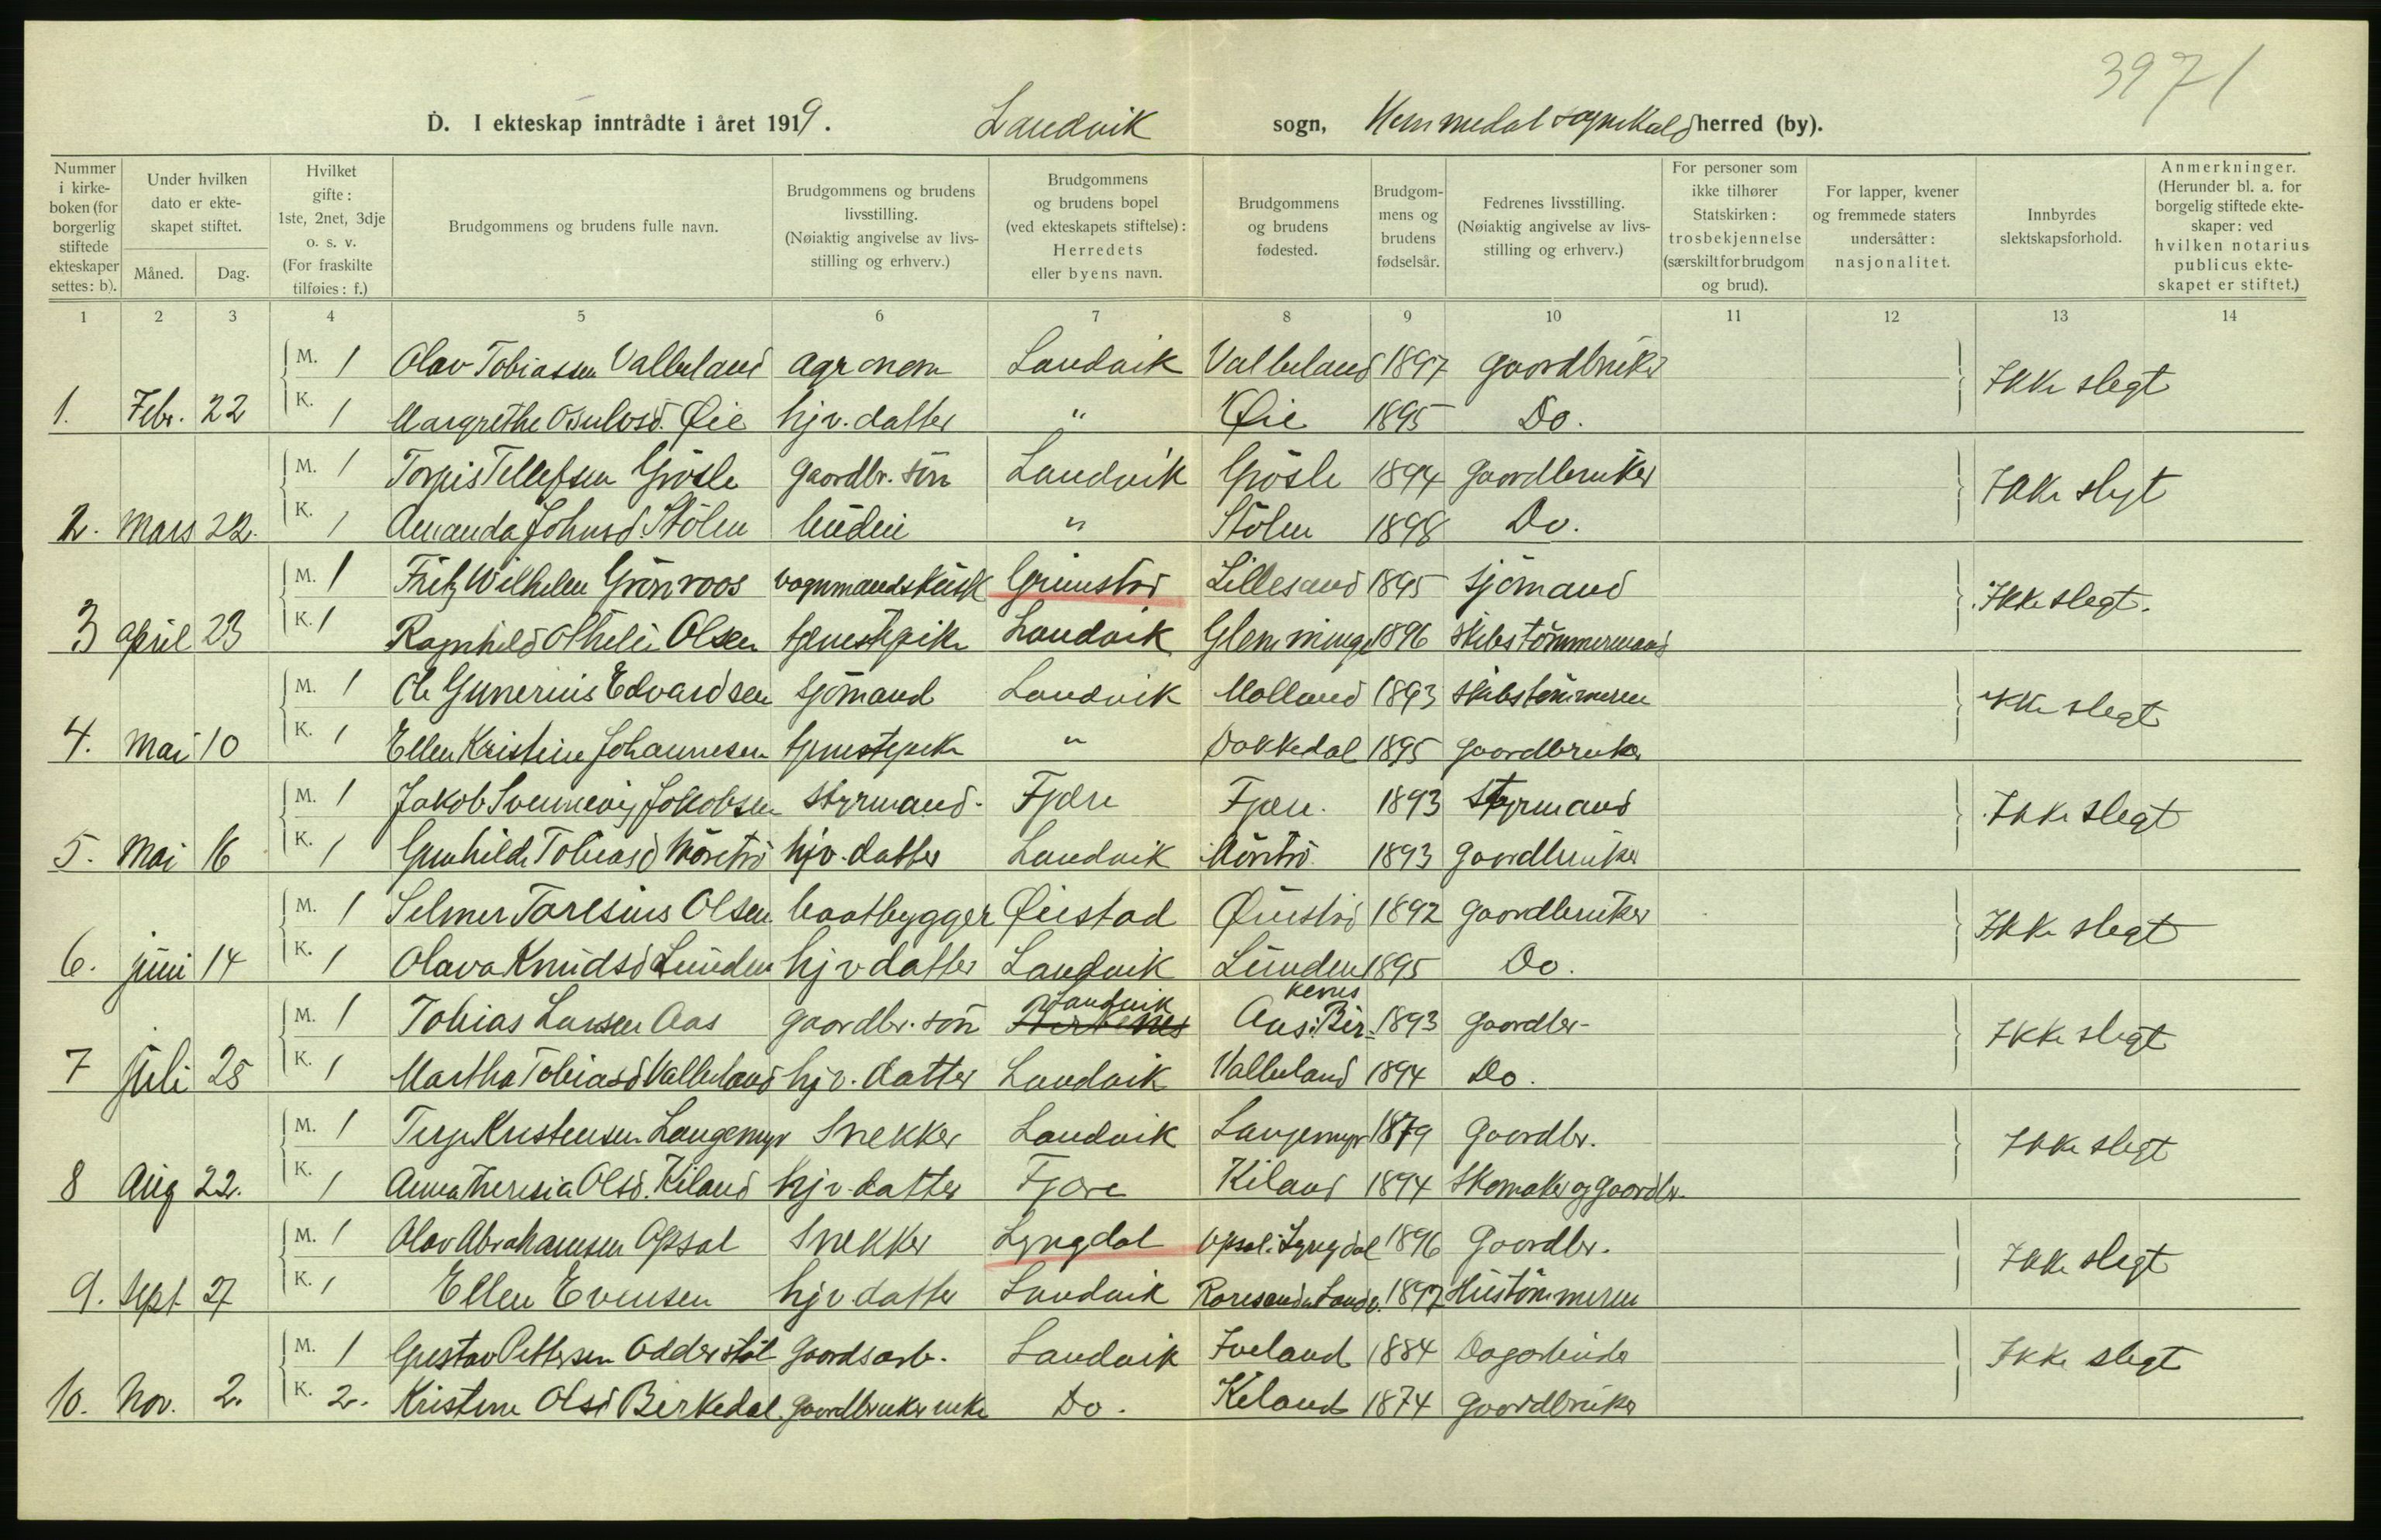 3971
D. I ekteskap inntrådte i året 1919. Landvik sogn, Hommedal sognekald herred (by).
Nummer i kirkeboken (for borgerlig stiftede ekteskaper settes: b).
Under hvilken dato er ekteskapet stiftet.
Måned.
Dag.
Hvilket gifte: 1ste, 2net, 3dje o. s. v. (For fraskilte tilføies: f.)
Brudgommens og brudens fulle navn.
Brudgommens og brudens livsstilling. (Nøiaktig angivelse av livsstilling og erhverv.)
Brudgommens og brudens bopel (ved ekteskapets stiftelse): Herredets eller byens navn.
Brudgommens og brudens fødested.
Brudgommens og brudens fødselsår.
Fedrenes livsstilling. (Nøiaktig angivelse av livsstilling og erhverv.)
For personer som ikke tilhører Statskirken: trosbekjennelse (særskilt for brudgom og brud).
For lapper, kvener og fremmede staters undersåtter: nasjonalitet.
Innbyrdes slektskapsforhold.
Anmerkninger. (Herunder bl. a. for borgelig stiftede ekteskaper: ved hvilken notarius publicus ekteskapet er stiftet.)
1 2 3 4 5 6 7 8 9 10 11 12 13 14
M. 1 Olav Tobiassen Valbuland agronom Landvik Valbuland 1897 gaardbruker Ikke slegt
1. Febr. 22 K. 1 Margrethe Osulvsd. Øie hjv. datter " Øie 1895 Do.
M. 1 Torgis Tellefsen Grösle gaardbr. sön Landvik Grösle 1894 gaardbruker Ikke slegt
2. Mars 22. K. 1 Amanda Johnsd. Stölen " Stölen 1898 Do.
M. 1 Fritz Wilhelm Grönroos vognmandskusk Grimstad Lillesand 1895 sjömand Ikke slegt.
3 april 23 K. 1 Ragnhild Othelie Olsen tjenestepike Landvik Glemminge 1896 skibstömmermand
M. 1 Ole Gunerius Edvardsen sjömand Landvik Molland 1893 skibstömmerm Ikke slegt
4. Mai 10 K. 1 Ellen Kristine Johannesen tjenestepike " Dokkedal 1895 gaardbruker
M. 1 Jakob Svennevig Jakobsen styrmand. Fjære Fjære. 1893 Styrmand Ikke slegt
5. Mai 16 K. 1 Gunhilde Tobiasd Möretrö hjv. datter Landvik 1893 gaardbruker
M. 1 Selmer Taresius Olsen baatbygger Øiestad Øiestad 1892 gaardbruker Ikke slegt
6. juni 14 K. 1 Olava Knudsd Lunden hjv datter Landvik Lunden 1895 Do.
M. 1 Tobias Larsen Aas gaardbr. sön Landvik Birkenes Aas: Birkenes 1893 gaardbr- Ikke slegt
7 juli 25 K. 1 Martha Tobiasd Valbuland hjv. datter Landvik Valbuland 1894 Do.
M. 1 Terje Kristensen Langemyr Snekker Landvik Langemyr 1879 Gaardbr. Ikke slegt
8 Aug 22. K. 1 Anna Theresia Olsd. Kiland hjv. datter Fjære Kiland 1894 Skomaker og gaardbr.
M. 1 Olav Abrahamsen Opsal Snekker Lyngdal Opsal: Lyngdal 1896 Gaardbr. Ikke slegt
9. Sept. 27 K. 1 Ellen Evensen hjv datter Landvik Roresand Landv. 1897 Hustömmerm
M. 1 Gustav Pettersen Odderstöl Gaardsarb. Landvik Iveland 1884 Dagarbeider Ikke slegt
10. Nov. 2. K. 2. Kristine Olsd Birkedal gaardbruker enke Do. Keland 1874 Gaardbruker